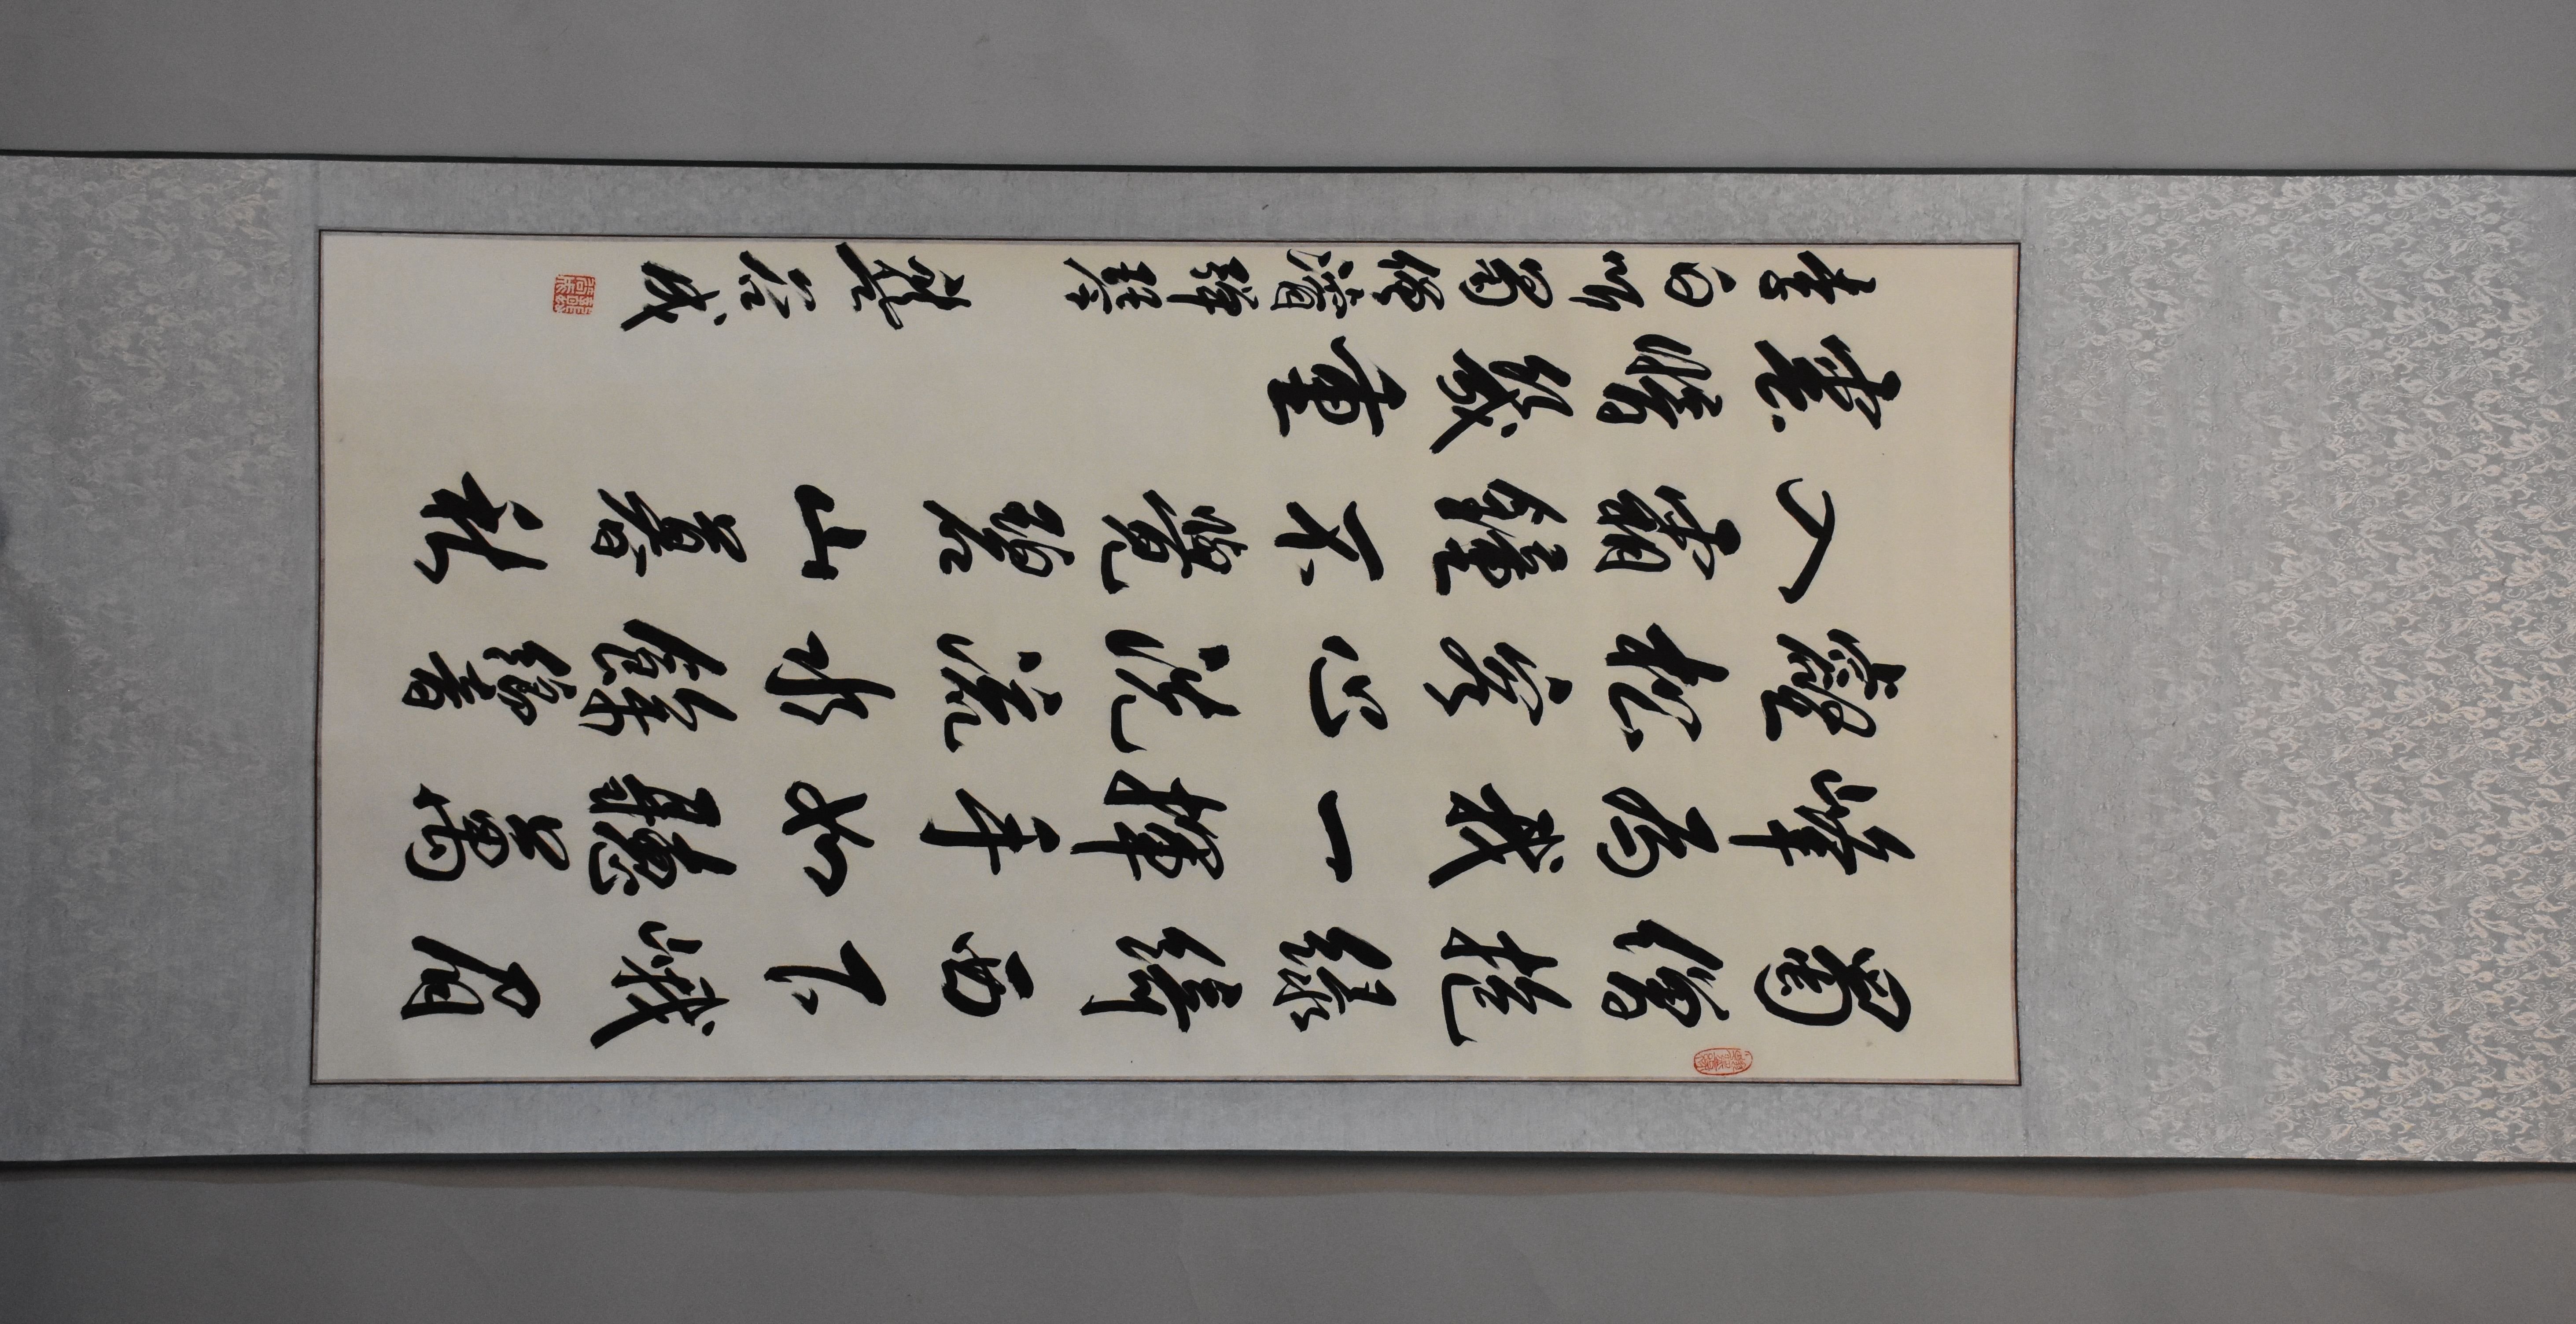 蜀僧抱綠綺西下峨眉
峰為我一揮手如聽萬
壑松客心洗流水餘響
入霜鐘不覺碧山暮秋
雲暗幾重
李白听蜀僧濬彈琴 龔